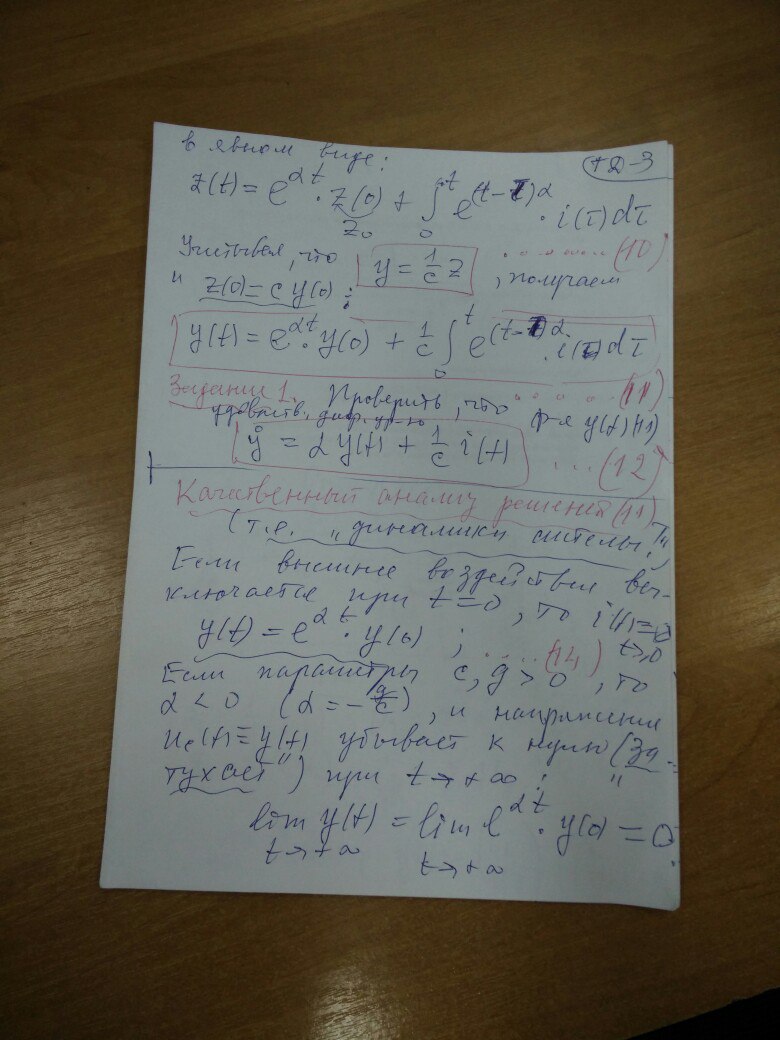 в явном виде: ТД-3
z(t) = e^{αt} · z(0) + ∫_0^t e^{(t-τ)α} · i(τ)dτ
z_0
..... (10)
Учитывая, что y = 1/c z , получаем
и z(0) = c y(0) :
y(t) = e^{αt} · y(0) + 1/c ∫_0^t e^{(t-τ)α} · i(τ)dτ
..... (11)
Задание 1. Проверить, что ф-я y(t) (11)
удовлетв. диф. ур-ю
ẏ = α y(t) + 1/c i(t) ... (12)
Качественный анализ решений (11)
(т.е. "динамики системы")
Если внешнее воздействие вы-
ключается при t = 0, то i(t) ≡ 0
t>0
y(t) = e^{αt} · y(0) ; .... (14)
Если параметры c, g > 0, то
α < 0 (α = -g/c), и напряжение
u_c(t) ≡ y(t) убывает к нулю ("за-
тухает") при t → +∞ :
lim y(t) = lim e^{αt} · y(0) = 0.
t→+∞ t→+∞